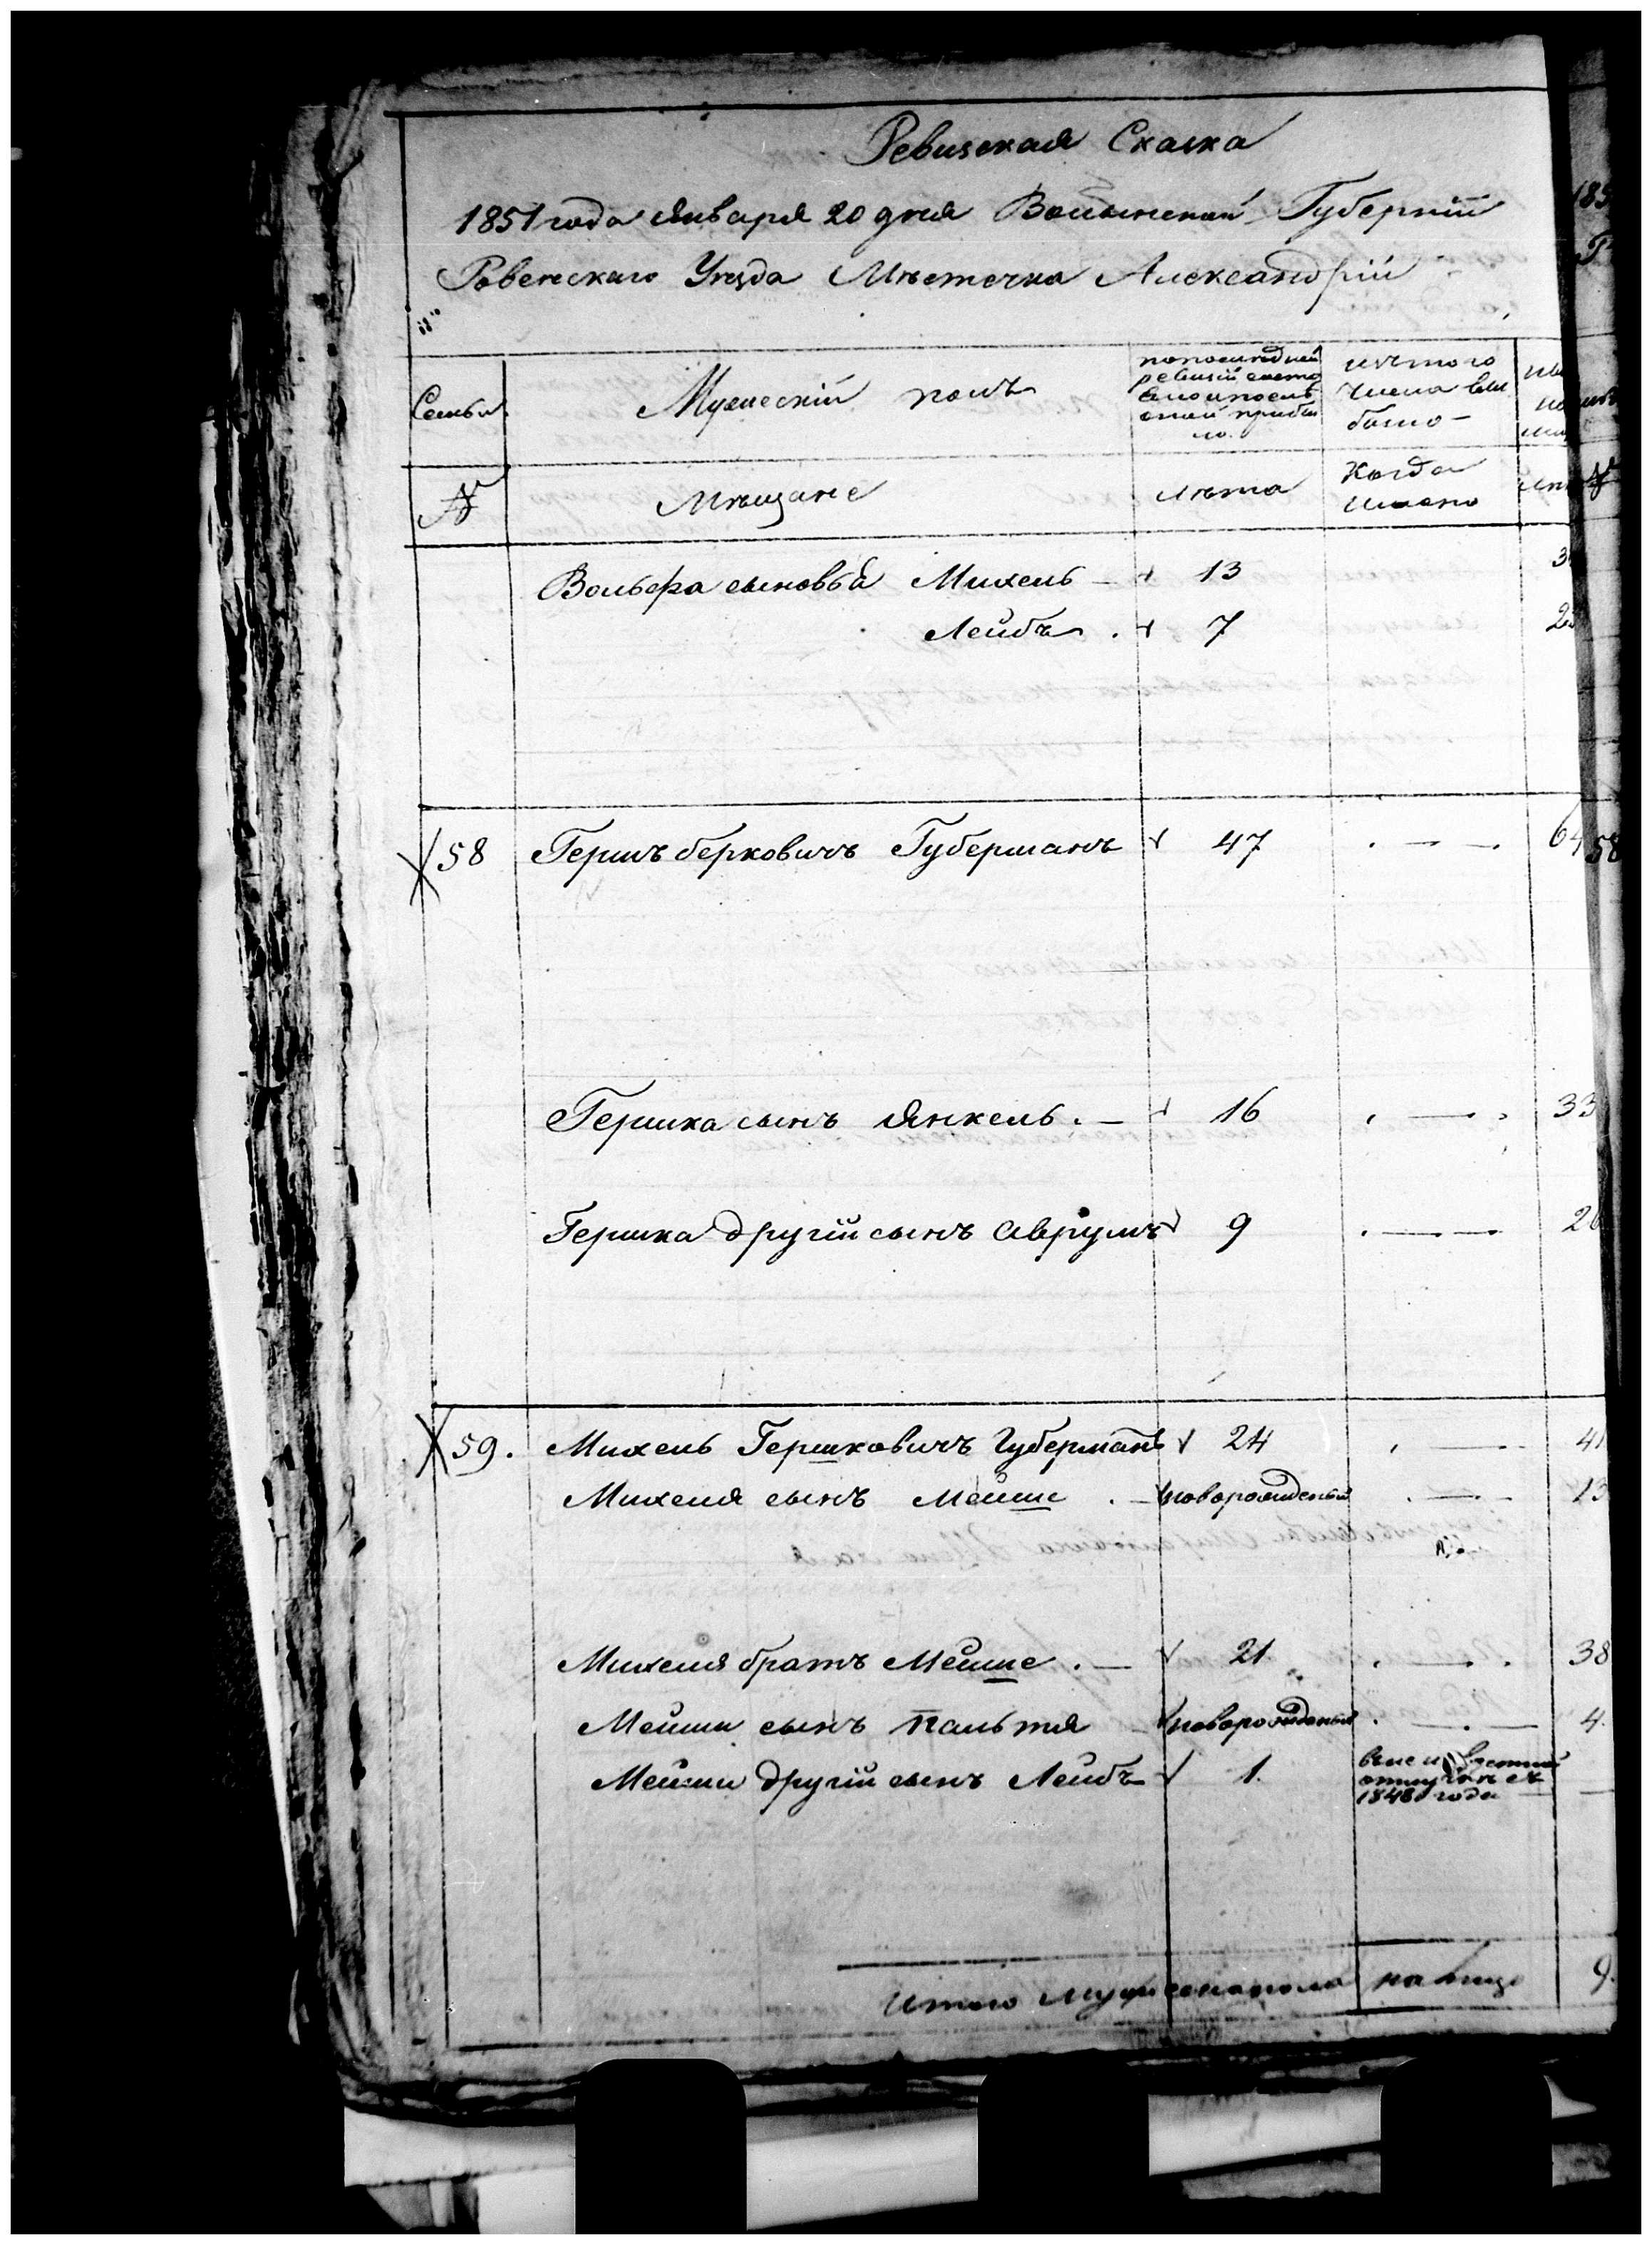 Ревизская Сказка
1851 года Января 20 дня Волынской Губерніи
Ровенскаго Уезда Мѣстечка Александріи
Семьи
Мужескій полъ
по последней
ревизій состо
яло и послѣ
оной прибы
ло.
изъ того
числа вы
было –
№
Мѣщане
лѣта
Когда
имено
Вольфа сыновья Михель – 13
Лейбъ . 7
58 Гершъ Берковичъ Губерманъ 47 64 58
Гершка сынъ Янкель . – 16 33
Гершка другій сынъ Аврумъ 9 26
59. Михель Гершковичъ Губерманъ 24 41
Михеля сынъ Мейше . – новорожденый 13
Михеля братъ Мейше . – 21 38
Мейши сынъ Пальтя – новорожденый 4.
Мейши другій сынъ Лейбъ 1.
отлучкѣ съ
1848 года –
Итого мужеска пола на лицо 9.